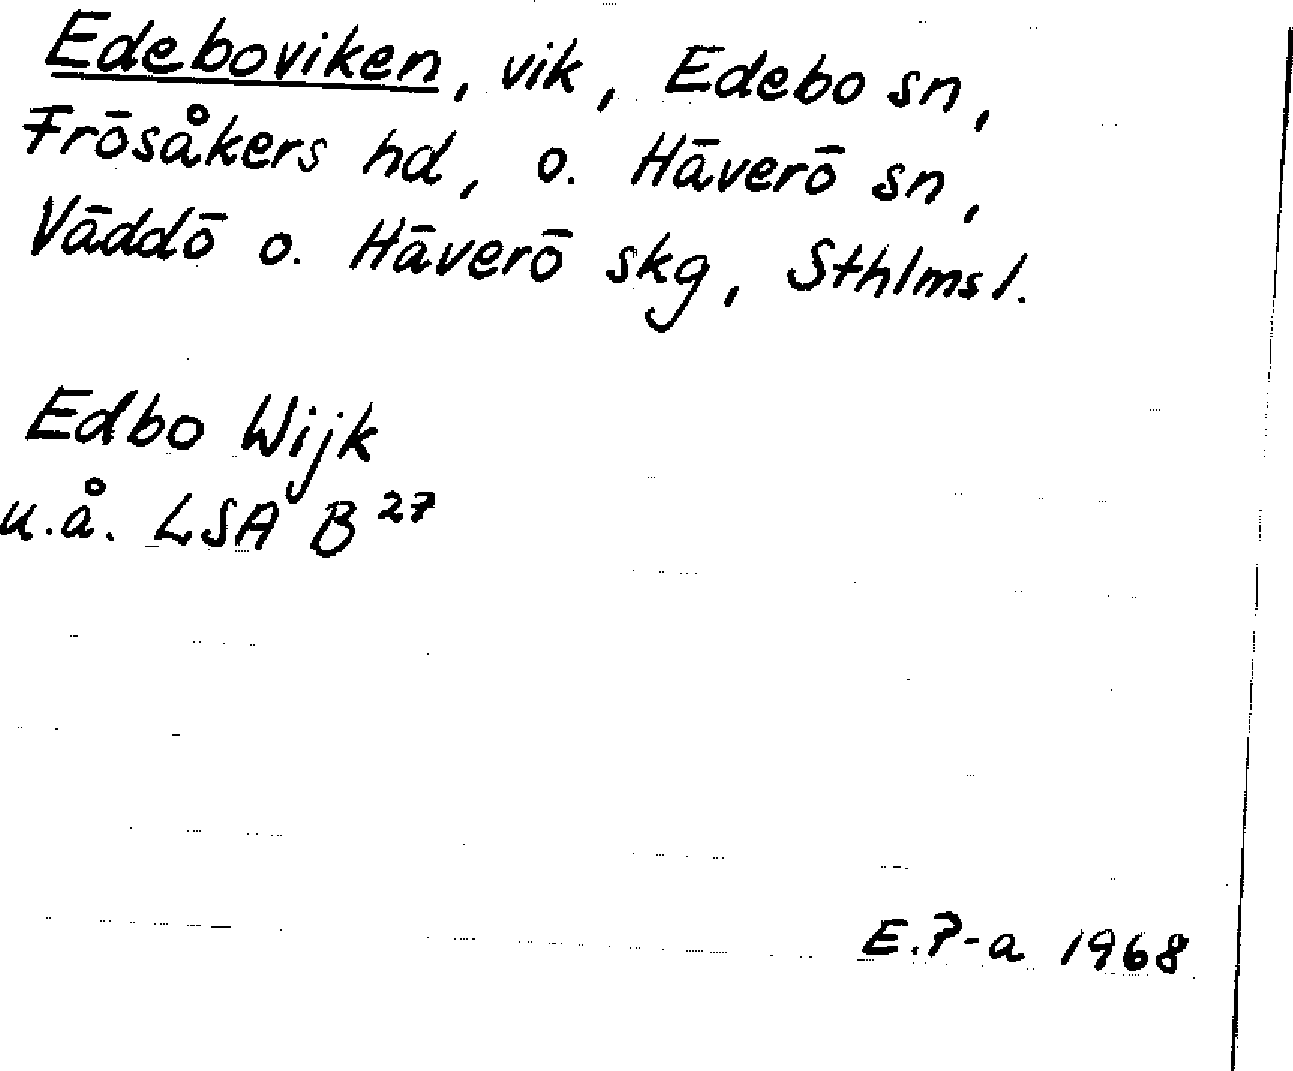 Edeboviken, vik, Edebo sn,
Frösåkers hd, o. Häverö sn,
Väddö o. Häverö skg, Sthlms l.
Edbo Wijk
u.å. LSA B 27
E.P-a 1968